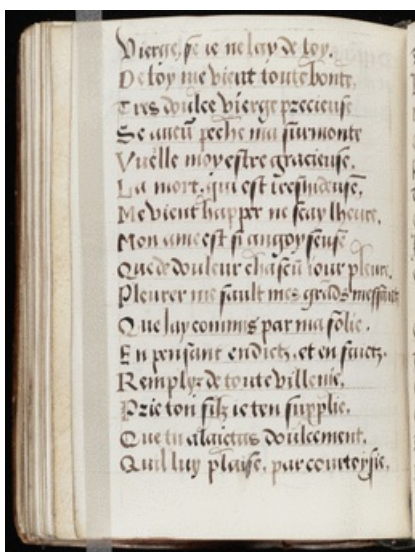 Vierge, se ie ne lay de toy.
De toy me vient toute bonte,
Tres doulce vierge precieuse
Se aucū peche ma surmonte
Vueille moy estre gracieuse,
La mort, qui est treshideuse,
Me vient happer ne scay lheure,
Mon ame est si angoysseuse
Que de douleur chascū iour pleure,
Pleurer me fault mes grāds meffaitz
Que iay commis par ma folie,
En pensant en dictz, et en faictz,
Remplyz de toute villenie,
Prie ton filz ie ten supplie,
Que tu alaictas doulcement,
Quil luy plaise, par courtoysie,